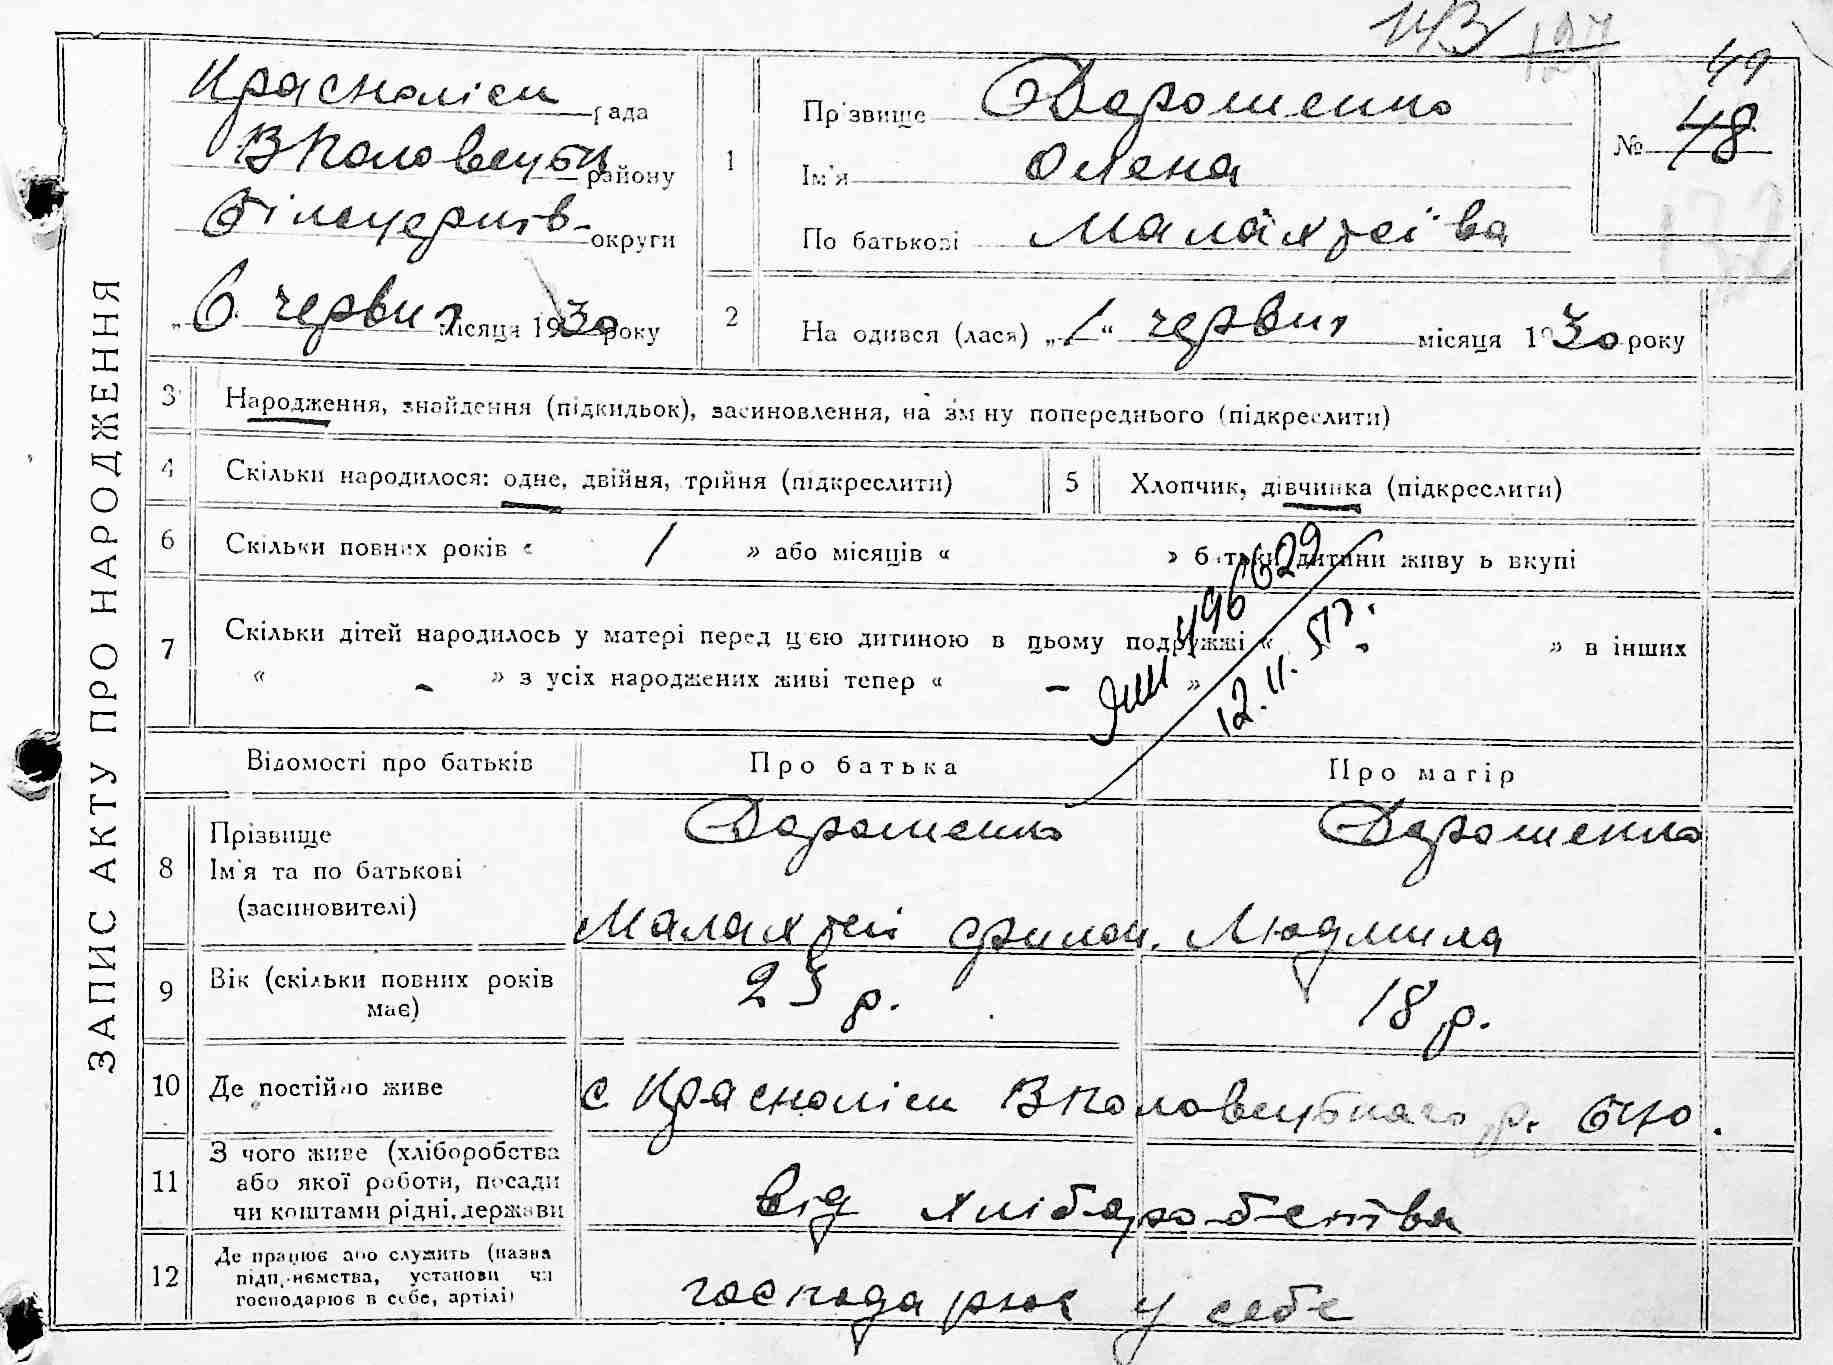 ЗАПИС АКТУ ПРО НАРОДЖЕННЯ
143/
127
Красноліси рада
Вполовецьк району
Білоцерків- округи
„6" червня місяця 1930 року
1
Прізвище Дорошенко
Ім'я Олена
По батькові Малахтеївa
49
№ 48
132
2 На одився (лася) „1“ червня місяця 1930 року
3 Народження, знайдення (підкидьок), засиновлення, на зміну попереднього (підкреслити)
4 Скільки народилося: одне, двійня, трійня (підкреслити)
5 Хлопчик, дівчинка (підкреслити)
6 Скільки повних років « 1 » або місяців « » батьки дитини живуть вкупі
7 Скільки дітей народилось у матері перед цією дитиною в цьому подружжі « - » в інших
« - » з усіх народжених живі тепер « - »
496629
12.11.57г.
Відомості про батьків Про батька Про матір
8 Прізвище
Ім'я та по батькові
(засиновителі)
Дорошенко Дорошенко
Малахтей Филон. Людмила
9 Вік (скільки повних років
має)
23 р. 18 р.
10 Де постійно живе с Красноліси Вполовецького р. БЦО.
11 З чого живе (хліборобства
або якої роботи, посади
чи коштами рідні, держави
від хліборобства
12 Де працює або служить (назва
підприємства, установи чи
господарює в себе, артілі)
господарює у себе